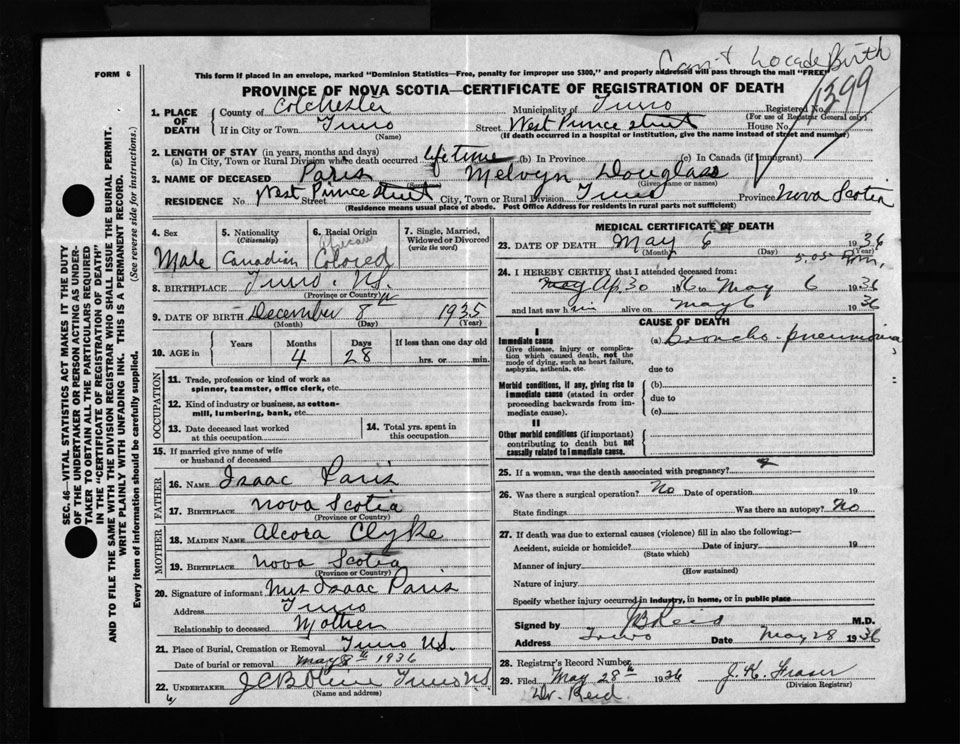 Can't Locate Birth
FORM 6
This form if placed in an envelope, marked "Dominion Statistics—Free, penalty for improper use $300," and properly addressed will pass through the mail "FREE"
PROVINCE OF NOVA SCOTIA—CERTIFICATE OF REGISTRATION OF DEATH
1399
1. PLACE OF DEATH
County of Colchester Municipality of Truro Registered No.
(For use of Registrar General only)
If in City or Town Truro Street West Prince Street House No.
(Name) (If death occurred in a hospital or institution, give the name instead of street and number)
2. LENGTH OF STAY (in years, months and days)
(a) In City, Town or Rural Division where death occurred lifetime (b) In Province (c) In Canada (if immigrant)
3. NAME OF DECEASED Paris Melvyn Douglas
(Surname) (Given name or names)
RESIDENCE No. West Prince Street Street City, Town or Rural Division Truro Province Nova Scotia
(Residence means usual place of abode. Post Office Address for residents in rural parts not sufficient)
4. Sex
Male
5. Nationality
(Citizenship)
Canadian
6. Racial Origin
African
Colored
7. Single, Married, Widowed or Divorced
(write the word)
8. BIRTHPLACE Truro, N.S.
(Province or Country)
9. DATE OF BIRTH December 8th 1935
(Month) (Day) (Year)
10. AGE in
Years Months Days If less than one day old
4 28 hrs. or min.
OCCUPATION
11. Trade, profession or kind of work as spinner, teamster, office clerk, etc.
12. Kind of industry or business, as cotton-mill, lumbering, bank, etc.
13. Date deceased last worked at this occupation
14. Total yrs. spent in this occupation
15. If married give name of wife or husband of deceased
FATHER
16. NAME Isaac Paris
17. BIRTHPLACE Nova Scotia
(Province or Country)
MOTHER
18. MAIDEN NAME Alcora Clyke
19. BIRTHPLACE Nova Scotia
(Province or Country)
20. Signature of informant Mrs Isaac Paris
Address Truro
Relationship to deceased Mother
21. Place of Burial, Cremation or Removal Truro N.S.
Date of burial or removal May 8th 1936
22. UNDERTAKER Truro N.S.
(Name and address)
MEDICAL CERTIFICATE OF DEATH
23. DATE OF DEATH May 6 1936
(Month) (Day) (Year)
5.05 P.m.
24. I HEREBY CERTIFY that I attended deceased from:
May Ap. 30 1936 to May 6 1936
and last saw him alive on May 6 1936
CAUSE OF DEATH
I
Immediate cause
Give disease, injury or complication which caused death, not the mode of dying, such as heart failure, asphyxia, asthenia, etc.
(a) Broncho-pneumonia
due to
Morbid conditions, if any, giving rise to immediate cause (stated in order proceeding backwards from immediate cause).
(b)
due to
(c)
II
Other morbid conditions (if important) contributing to death but not causally related to immediate cause.
25. If a woman, was the death associated with pregnancy?
26. Was there a surgical operation? No Date of operation 19
State findings Was there an autopsy? No
27. If death was due to external causes (violence) fill in also the following:—
Accident, suicide or homicide? Date of injury 19
(State which)
Manner of injury
(How sustained)
Nature of injury
Specify whether injury occurred in industry, in home, or in public place
Signed by J B Reid M.D.
Address Truro Date May 28 1936
28. Registrar's Record Number
29. Filed May 28th 1936 J. K. Fraser
(Division Registrar)
Dr. Reid
SEC. 46—VITAL STATISTICS ACT MAKES IT THE DUTY
OF THE UNDERTAKER OR PERSON ACTING AS UNDER-
TAKER TO OBTAIN ALL THE PARTICULARS REQUIRED
IN THE "CERTIFICATE OF REGISTRATION OF DEATH"
AND TO FILE THE SAME WITH THE DIVISION REGISTRAR WHO SHALL ISSUE THE BURIAL PERMIT.
WRITE PLAINLY WITH UNFADING INK. THIS IS A PERMANENT RECORD.
Every item of information should be carefully supplied. (See reverse side for instructions.)